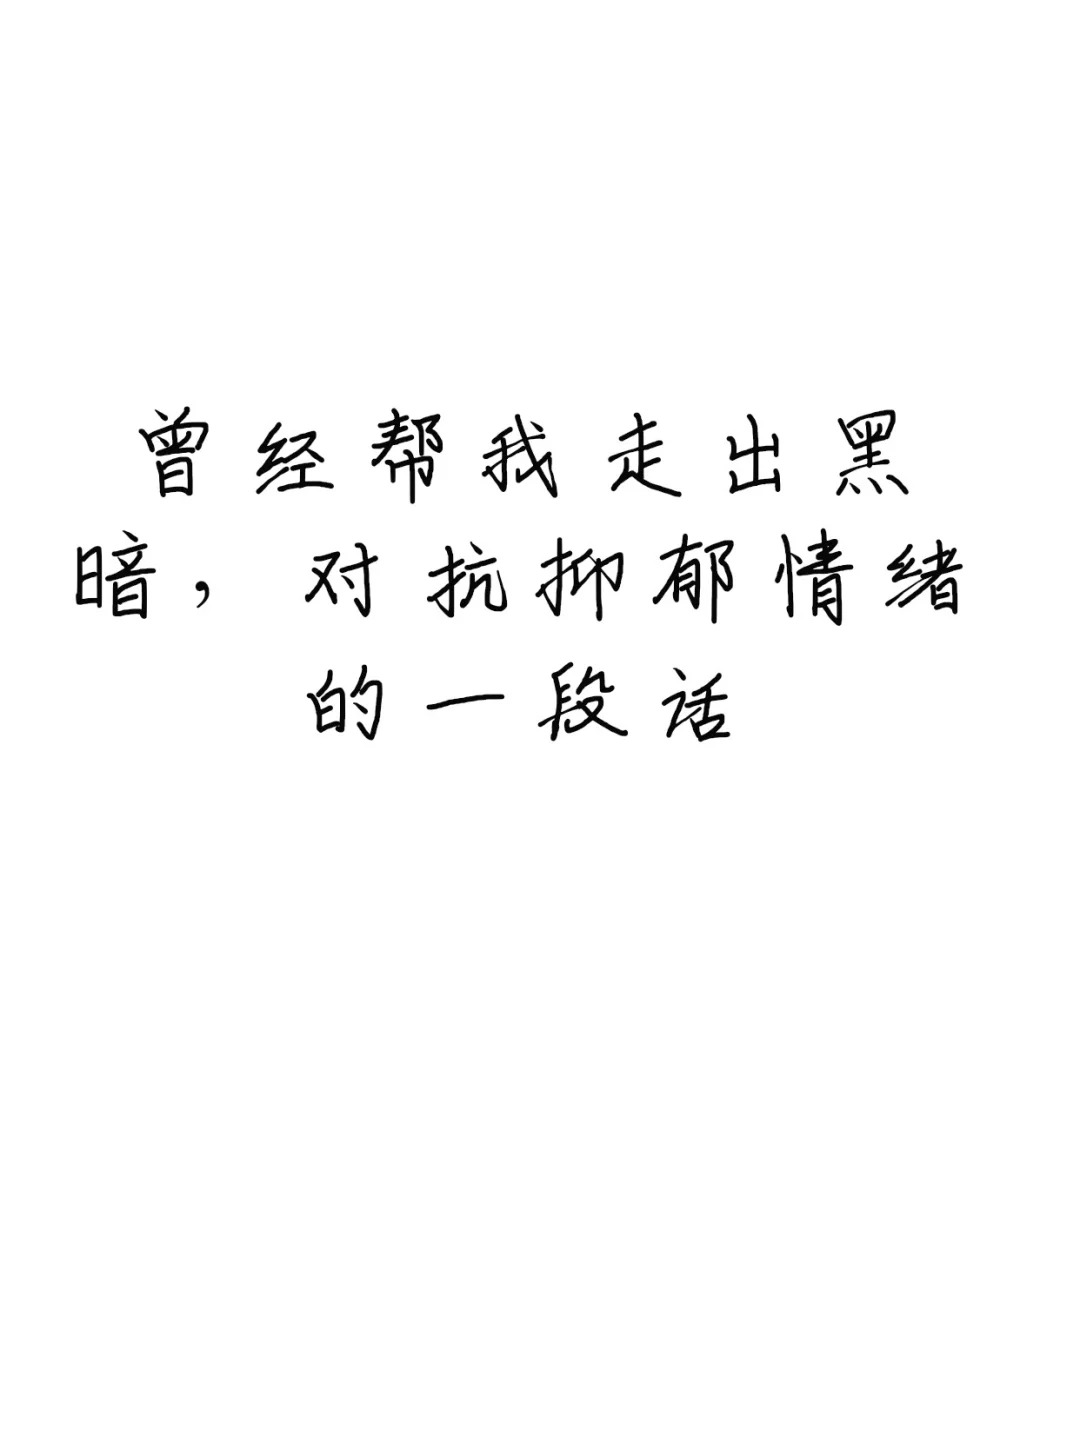 曾经帮我走出黑
暗，对抗抑郁情绪
的一段话